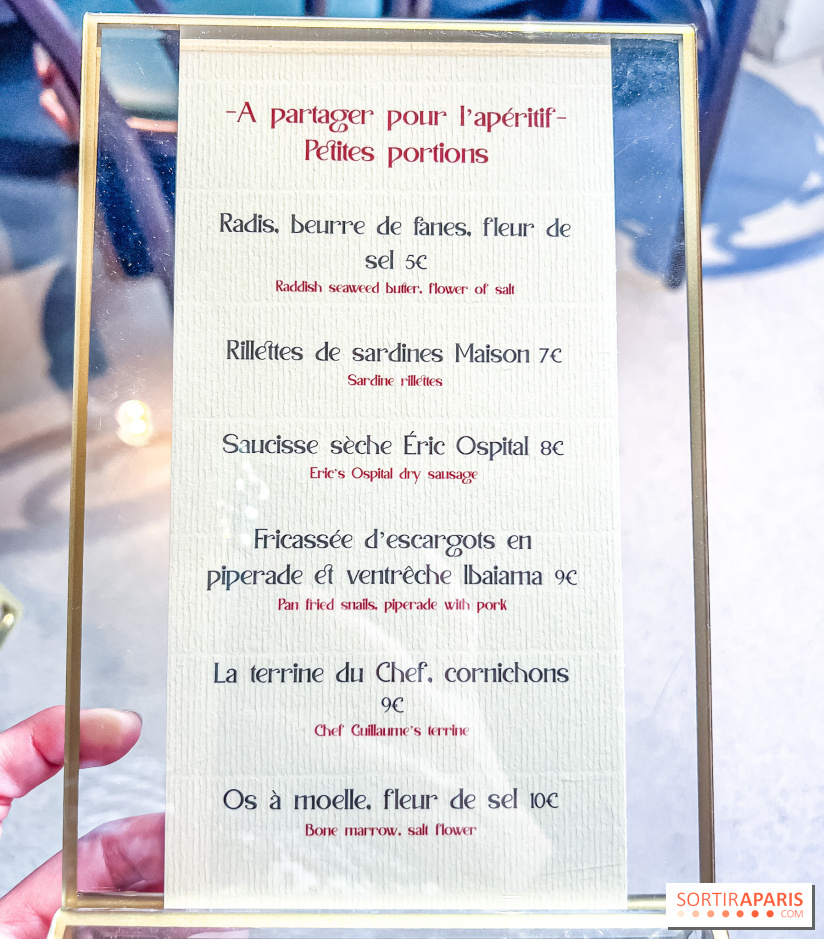 -A partager pour l'apéritif-
Petites portions
Radis, beurre de fanes, fleur de
sel 5€
Raddish seaweed butter, flower of salt
Rillettes de sardines Maison 7€
Sardine rillettes
Saucisse sèche Éric Ospital 8€
Eric's Ospital dry sausage
Fricassée d'escargots en
piperade et ventrêche Ibaiama 9€
Pan fried snails, piperade with pork
La terrine du Chef, cornichons
9€
Chef Guillaume's terrine
Os à moelle, fleur de sel 10€
Bone marrow, salt flower
SORTIRAPARIS
.COM